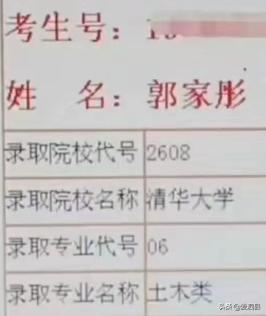 考生号：
姓 名：郭家彤
录取院校代号 2608
录取院校名称 清华大学
录取专业代号 06
录取专业名称 土木类
头条 @爱泗县